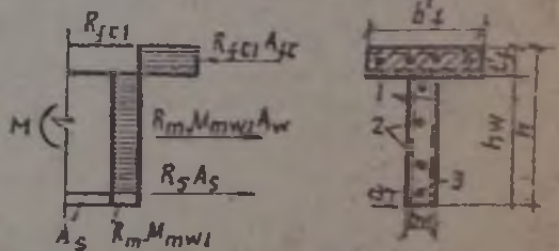 R_fc1
R_fc1 A_fc
M
R_m M_mw1 A_w
R_s A_s
A_s R_m M_mw1
b'f
1
2
3
hw
h